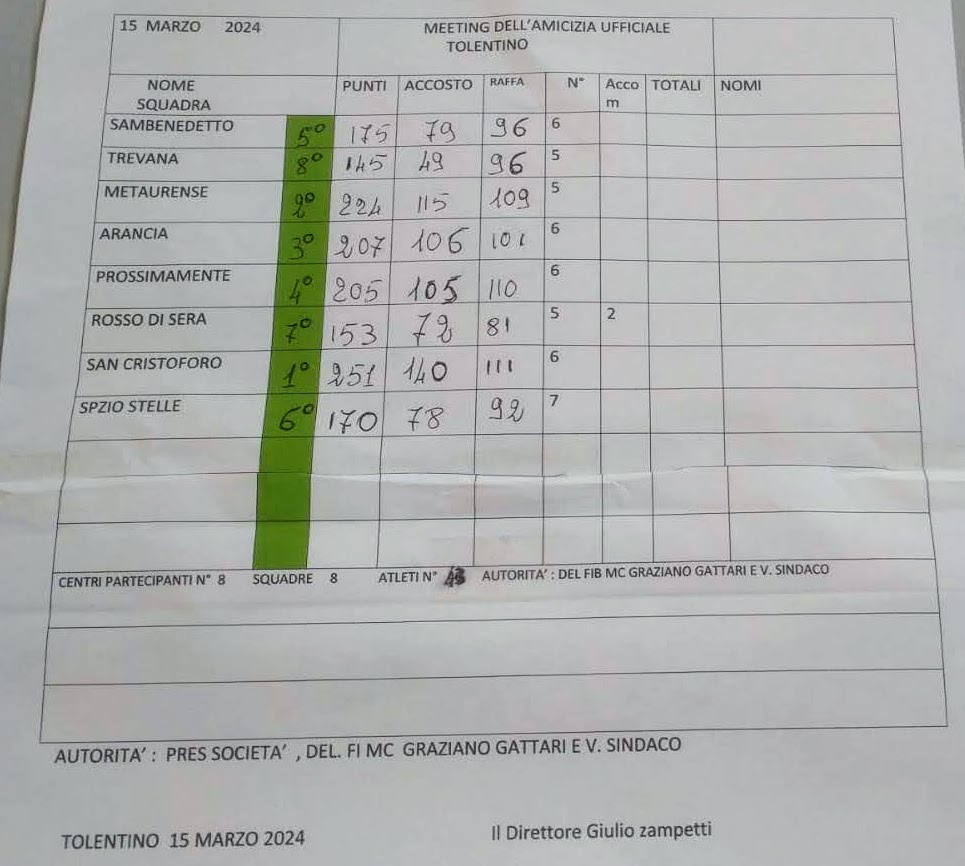 15 MARZO 2024 MEETING DELL'AMICIZIA UFFICIALE
TOLENTINO
NOME SQUADRA PUNTI ACCOSTO RAFFA N° Acco m TOTALI NOMI
SAMBENEDETTO 5° 175 79 96 6
TREVANA 8° 145 49 96 5
METAURENSE 2° 224 115 109 5
ARANCIA 3° 207 106 101 6
PROSSIMAMENTE 4° 205 105 110 6
ROSSO DI SERA 7° 153 72 81 5 2
SAN CRISTOFORO 1° 251 140 111 6
SPZIO STELLE 6° 170 78 92 7
CENTRI PARTECIPANTI N° 8 SQUADRE 8 ATLETI N° AUTORITA' : DEL FIB MC GRAZIANO GATTARI E V. SINDACO
AUTORITA' : PRES SOCIETA' , DEL. FI MC GRAZIANO GATTARI E V. SINDACO
TOLENTINO 15 MARZO 2024 Il Direttore Giulio zampetti